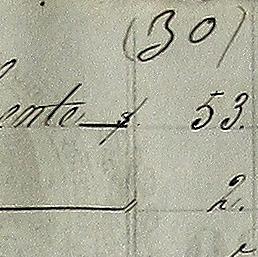 (30)
ente 53.
2.